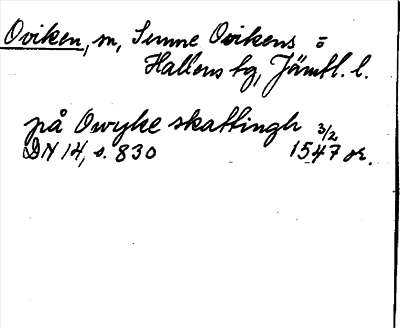 Oviken, sn, Sunne Ovikens o
Hallens tg, Jämtl. l.
på Owyke skattingh 3/2
DN 14, s. 830 1547 or.